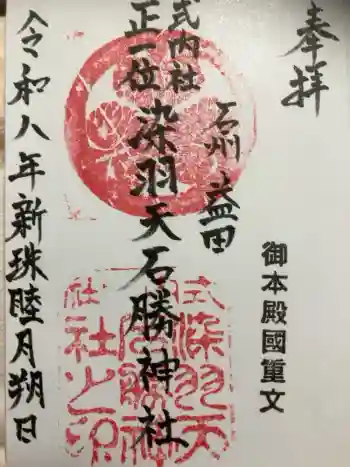 奉拝
石州 益田
御本殿國重文
式内社
正一位 染羽天石勝神社
令和八年新珠睦月朔日
式内
染羽天
石勝神
社之印